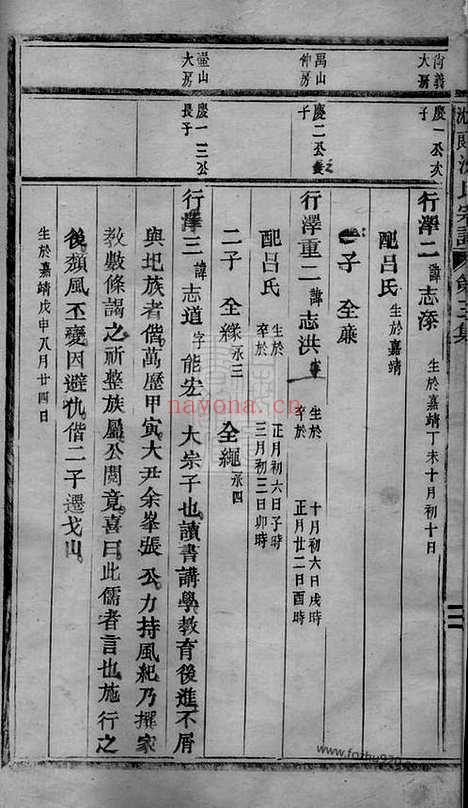 尙義大房
慶一公次子
行澤二 諱志深 生於嘉靖丁未十月初十日
配呂氏 生於嘉靖
禹山仲房
慶二公長之子
行澤重二 諱志洪 生於 十月初六日戌時 卒於 正月廿二日酉時
一子 全亷
配呂氏 生於 正月初六日子時 卒於 三月初三日卯時
二子 全緣 永三 全繩 永四
壷山大房
慶一三公長子
行澤三 諱志道 字能宏 大宗子也讀書講學教育後進不屑
與圯族者偕萬歷甲寅大尹余峯張公力持風紀乃撰家
教數條謁之祈整族屬公閱竟喜曰此儒者言也施行之
後頹風丕變因避仇偕二子遷戈山
生於嘉靖戊申八月廿四日
氏宗譜
第三集
三
nayona.cn
www.fozhu920.com